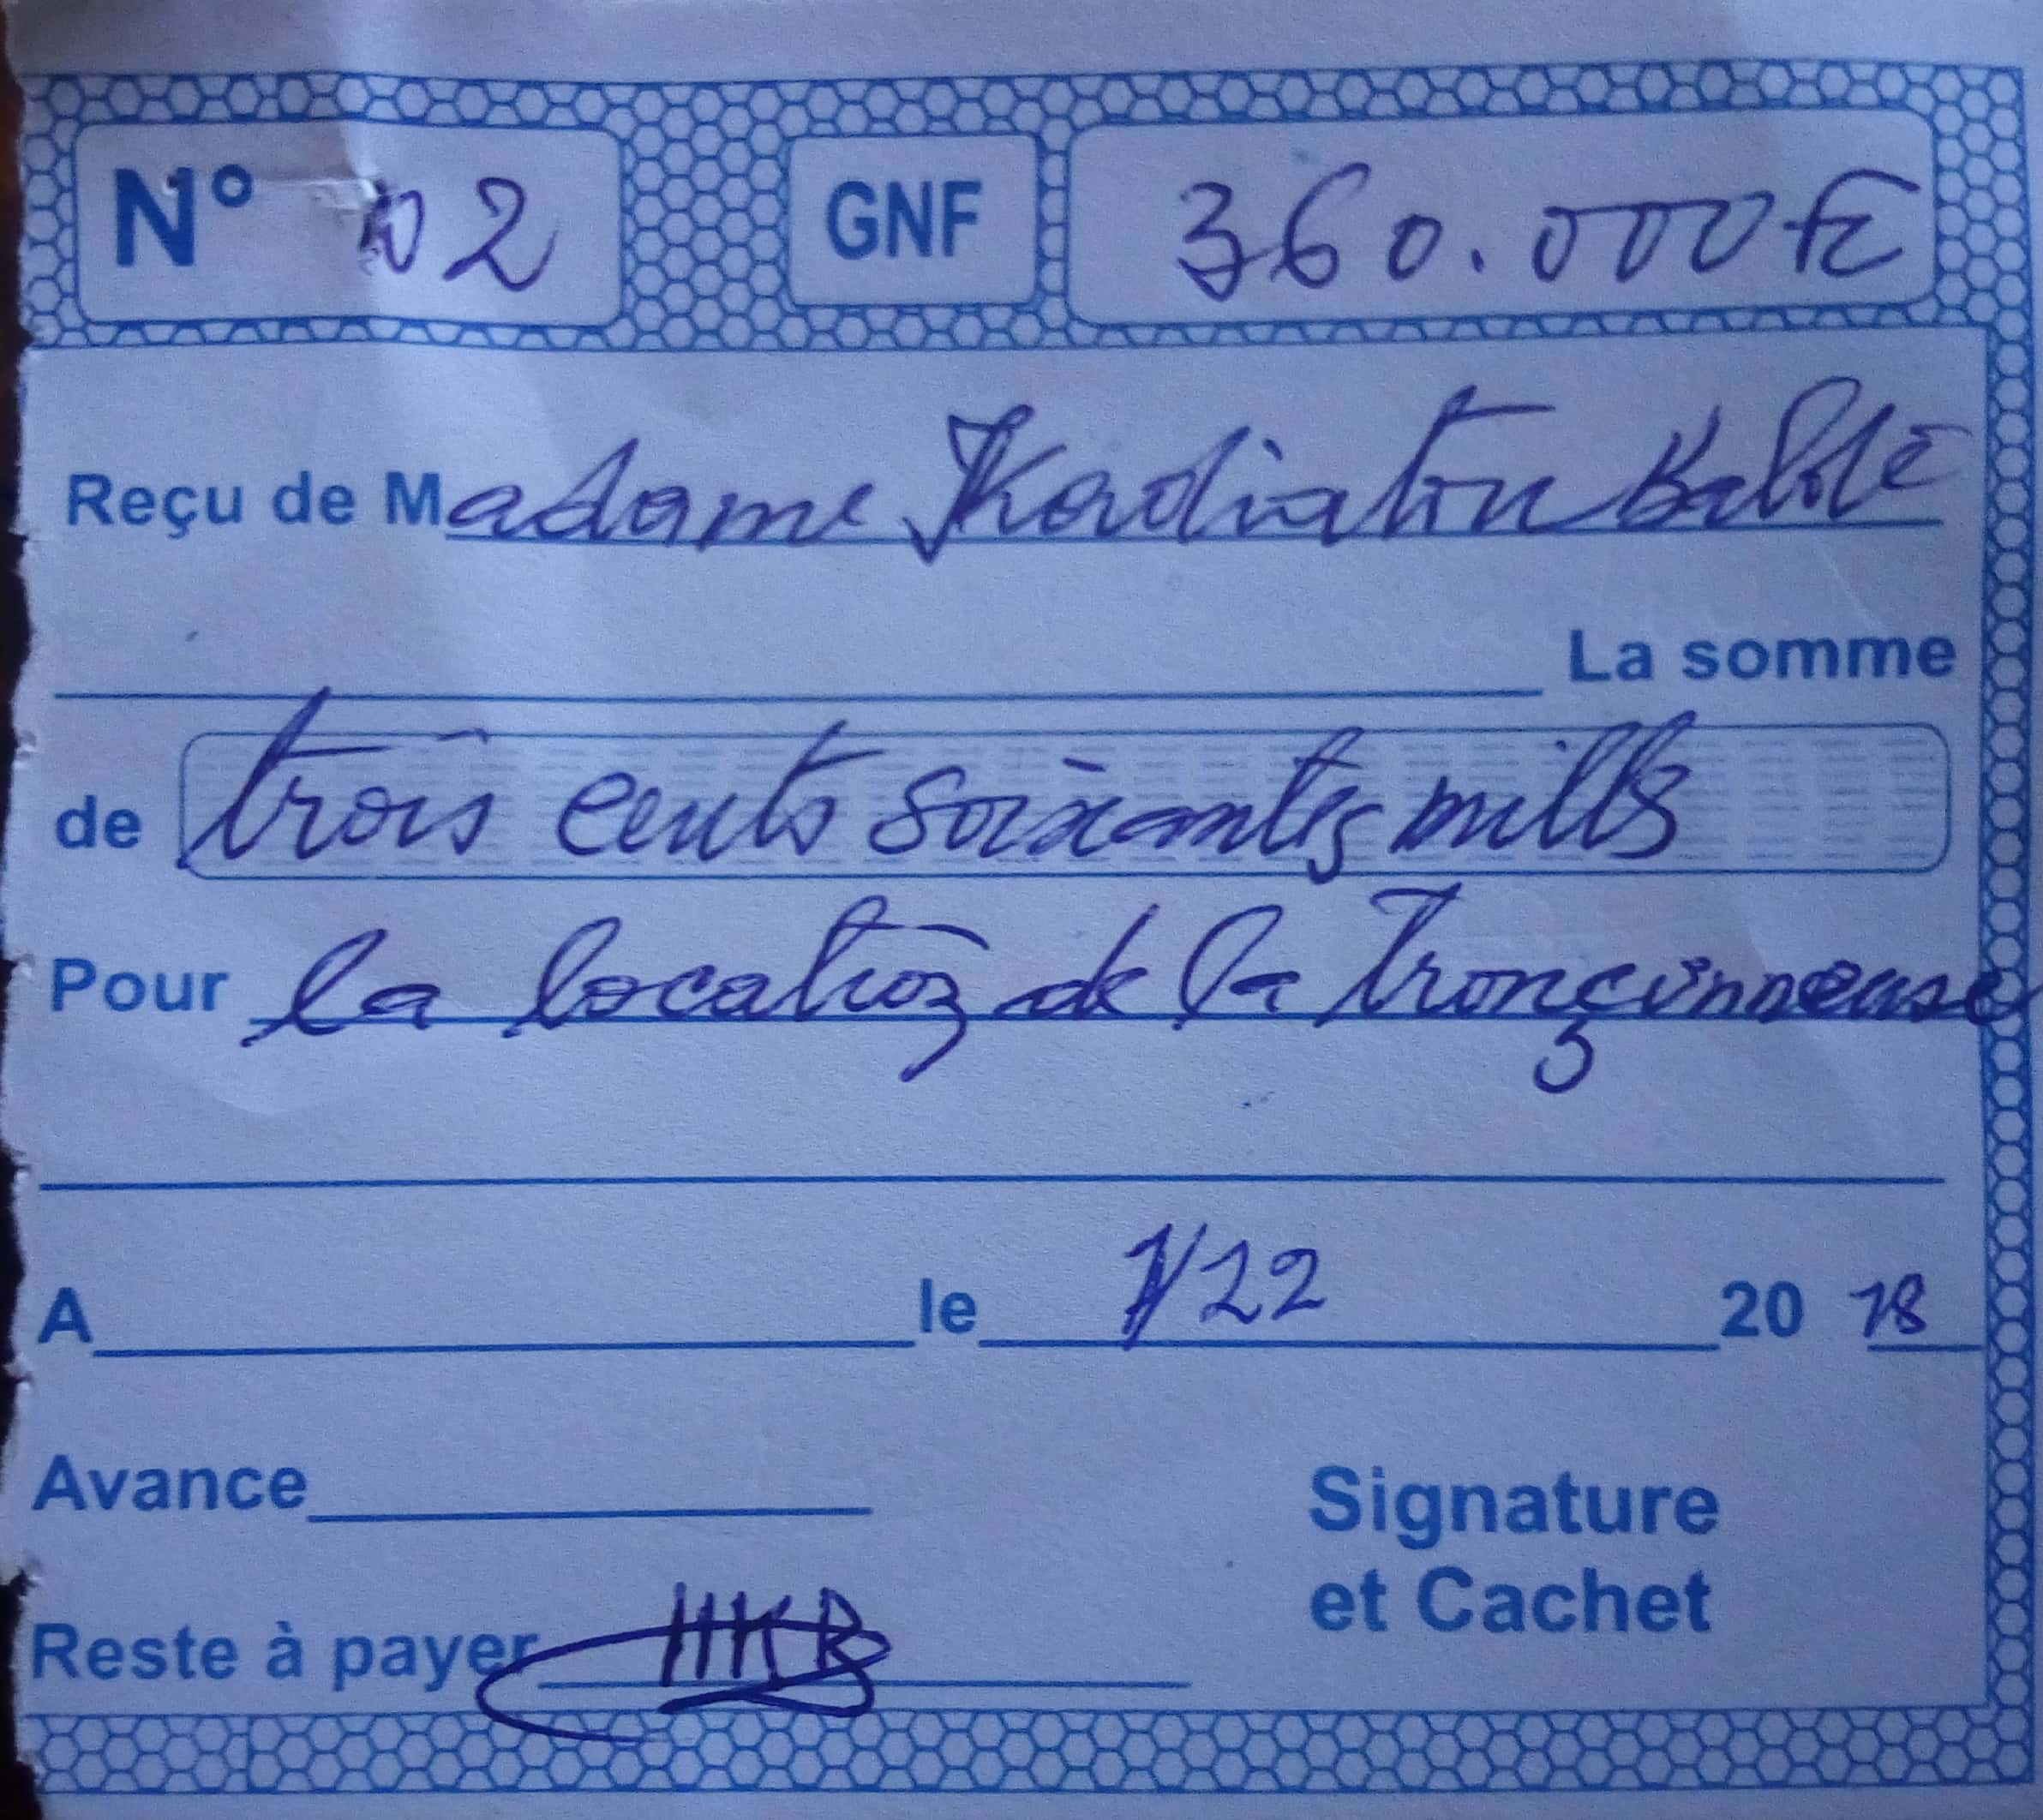 N° 02 GNF 360.000 FG
Reçu de Madame Kadiatou Baldé
La somme
de trois cents soixantes mills
Pour la location de la Tronçonneuse
A le 1/22 20 18
Avance
Signature
et Cachet
Reste à payer HKB